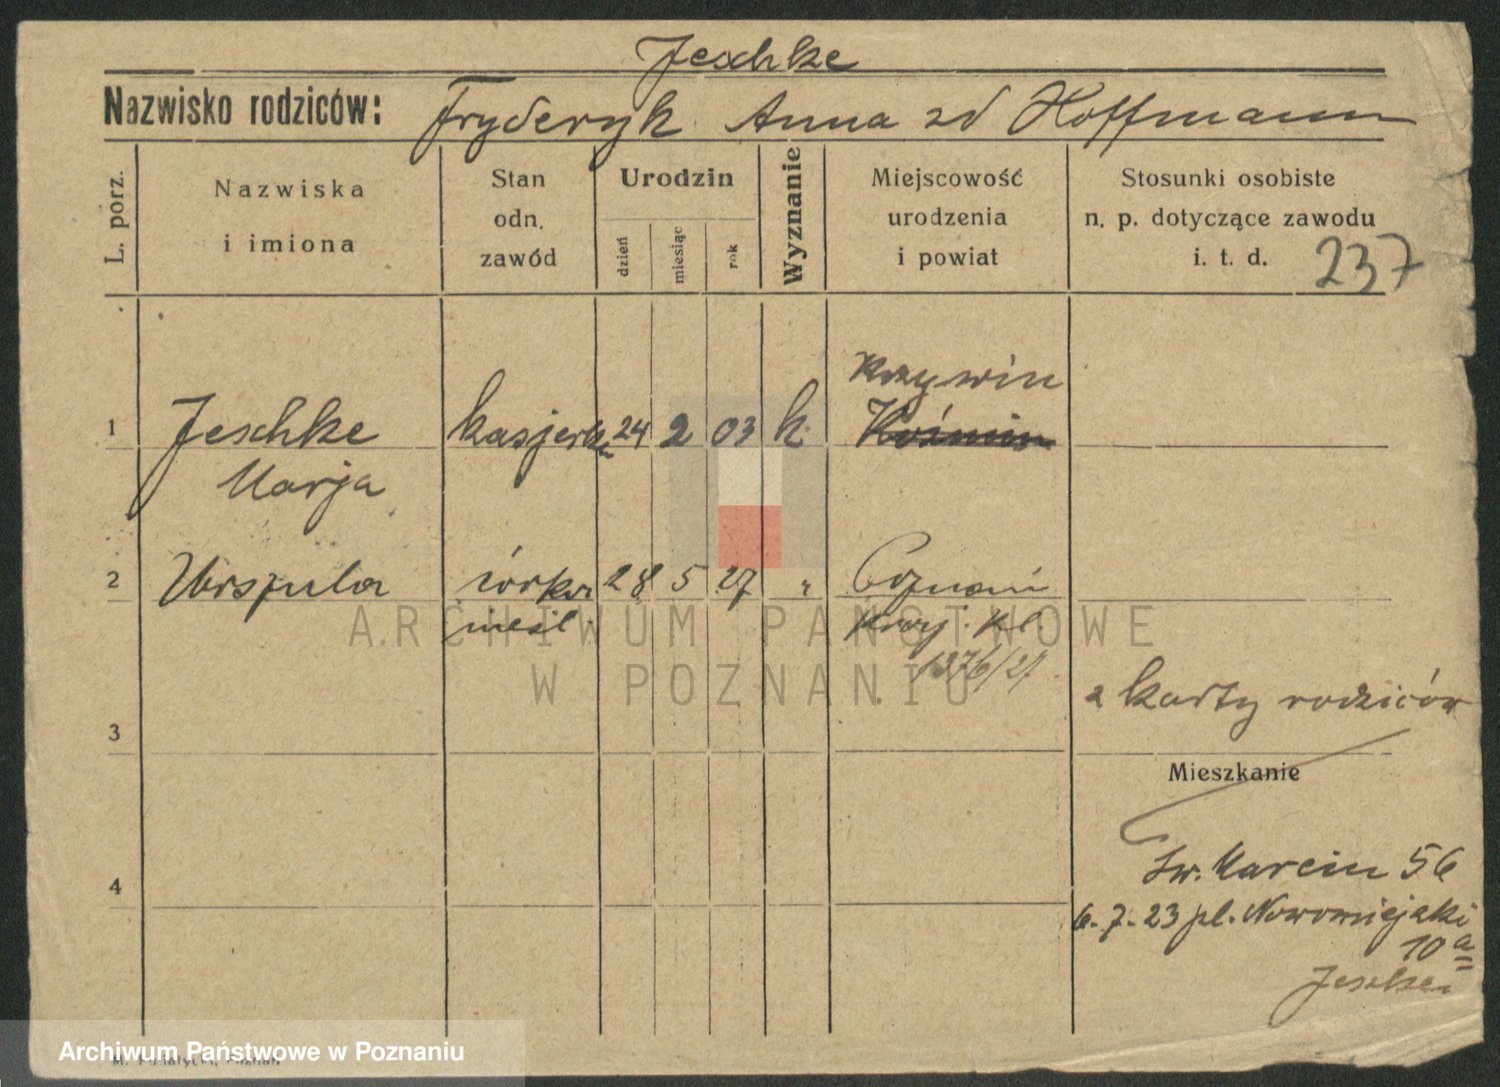 Jeschke
Nazwisko rodziców: Fryderyk Anna zd Hoffmann
L. porz.
Nazwiska
i imiona
Stan
odn.
zawód
Urodzin
dzień
miesiąc
rok
Wyznanie
Miejscowość
urodzenia
i powiat
Stosunki osobiste
n. p. dotyczące zawodu
i. t. d. 237
Krzywin
1 Jeschke kasjerka 24 2 03 k. Koźmin
Marja
2 Urszula córka 28 5 27 " Poznań
nieśl.
1376/27
2 karty rodziców
3
Mieszkanie
Św. Marcin 56
4
6.7.23 pl. Nowomiejski
10a
Jeschke
ARCHIWUM PAŃSTWOWE
W POZNANIU
Archiwum Państwowe w Poznaniu